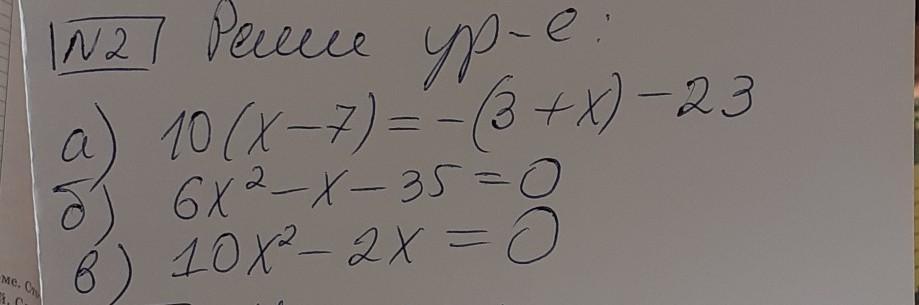 N2 Реши ур-е:
а) 10(x-7)=-(3+x)-23
б) 6x²-x-35=0
в) 10x²-2x=0